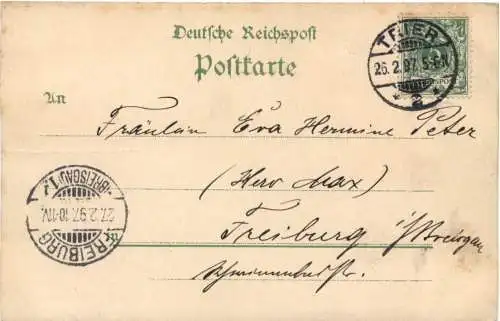 Deutsche Reichspost
Postkarte
TRIER
26.2.97. 5-6N
* 2 *
An
Fräulein Eva Hermine Peter
(Herv Max)
Freiburg i/Breisgau
FREIBURG
27.2.97. 10-11V.
(BREISGAU) 1